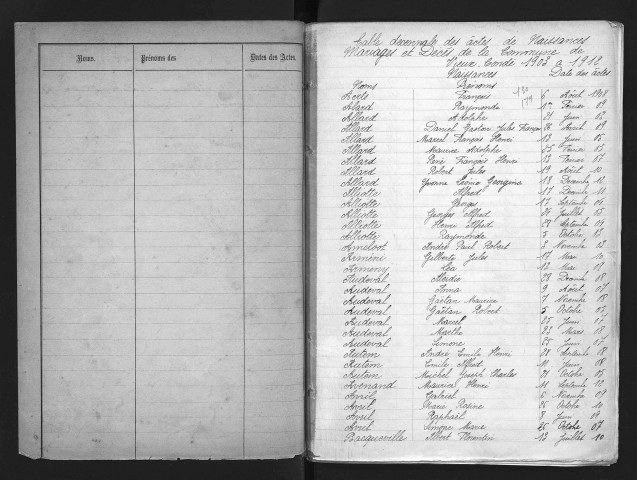 Noms. Prénoms des Dates des Actes.
Table décennale des actes de Naissances
Mariages et Décès de la Commune de
Vieux Condé 1903 à 1912
Naissances Date des actes
Noms Prénoms
François 6 Août 1908
Alard Raymonde Février 09
Allard Adolphe 21 Juin 03
Allard Daniel Gaston Jules François Avril 03
Allard Marcel François Henri 13 Juin 05
Allard Maurice Adolphe Février 03
Allard René François Henri 13 Février 07
Allard Robert Jules 19 Août 10
Allard Yvonne Léonie Georgina 18 Décembre 12
Alliotte Alfred 17 Décembre 11
Alliotte Georges 17 Septembre 06
Alliotte Georges Alfred Juillet
Alliotte Henri Alfred Septembre 04
Alliotte Raymonde 5 Octobre 12
Ameloot André Paul Robert 8 Novembre 03
Armeni Gilberte Jules 17 Mai 10
Armeny Léa 12 Mai 09
Audoval 08
Audoval Anna 9 Août 07
Audoval Gaëtan Maurice 7 08
Audoval Gaëtan Robert 5 Octobre 05
Audoval Marcel 25 Juin
Audoval Marthe Mars 08
Audoval Simone Juin 07
Autem André Emile Henri Septembre 08
Autem Emile Alfred 11 Juin 08
Autem Michel Joseph Charles 21 Octobre 05
Avenard Maurice Henri 11 Septembre 12
Avril Gabriel 6 Novembre 09
Avril Marie Rosine 25 Octobre 10
Avril Raphaël 8 Juin 09
Avril Simone Marie 25 Octobre 07
Bacqueville Albert Florentin 13 Juillet 10